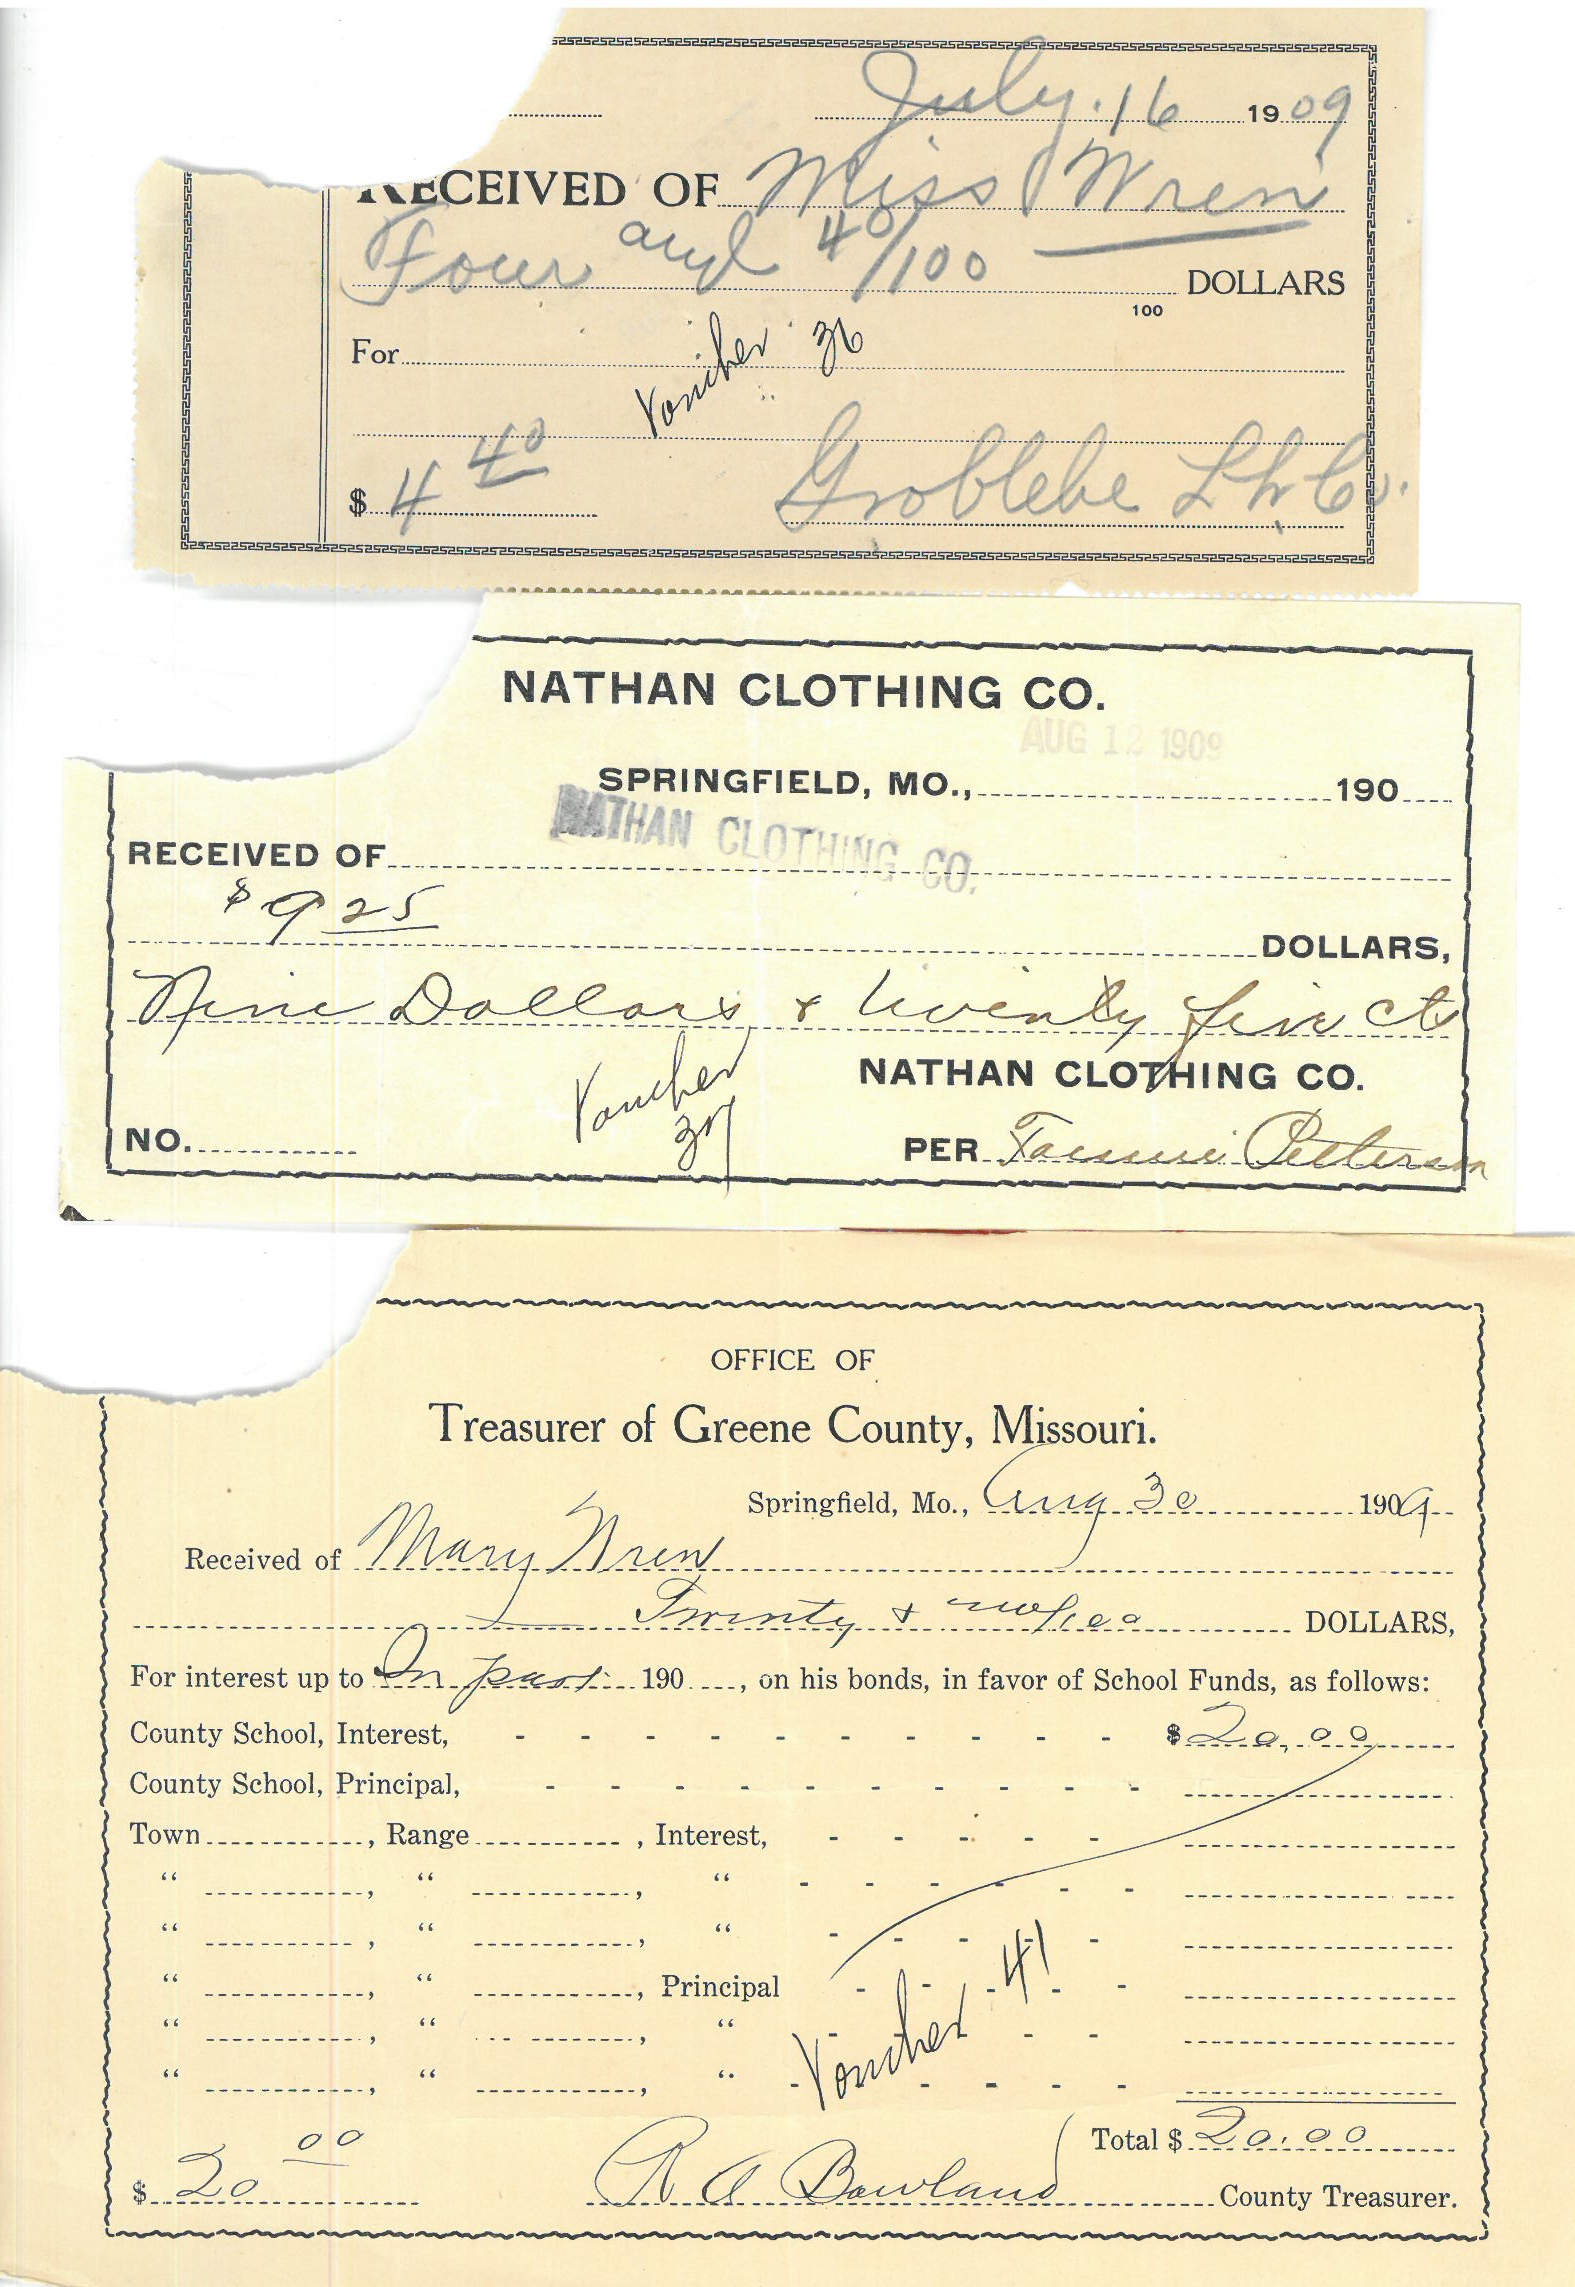 July. 16 1909
RECEIVED OF Miss Wren
Four and 40/100 DOLLARS
100
For
Voucher 36
$ 4 40
Groblebe L & Co.
NATHAN CLOTHING CO.
AUG 12 1909
SPRINGFIELD, MO., 190
NATHAN CLOTHING CO.
RECEIVED OF
$ 9 25
DOLLARS,
Nine Dollars & twenty five cts
NATHAN CLOTHING CO.
Voucher
37
NO.
PER Petterson
OFFICE OF
Treasurer of Greene County, Missouri.
Springfield, Mo., Aug 30 1909
Received of Mary Wren
Twenty & no/100 DOLLARS,
For interest up to In part 190 , on his bonds, in favor of School Funds, as follows:
County School, Interest, - - - - - - - - - - $ 20.00
County School, Principal, - - - - - - - - - -
Town , Range , Interest, - - - - -
“ , “ , “ - - - - - -
“ , “ , “ - - - - -
“ , “ , Principal - - - - -
“ , “ , “ - - - - -
“ , “ , “ - - - - - -
Voucher 41
Total $ 20.00
$ 20 00
R A Bowland County Treasurer.